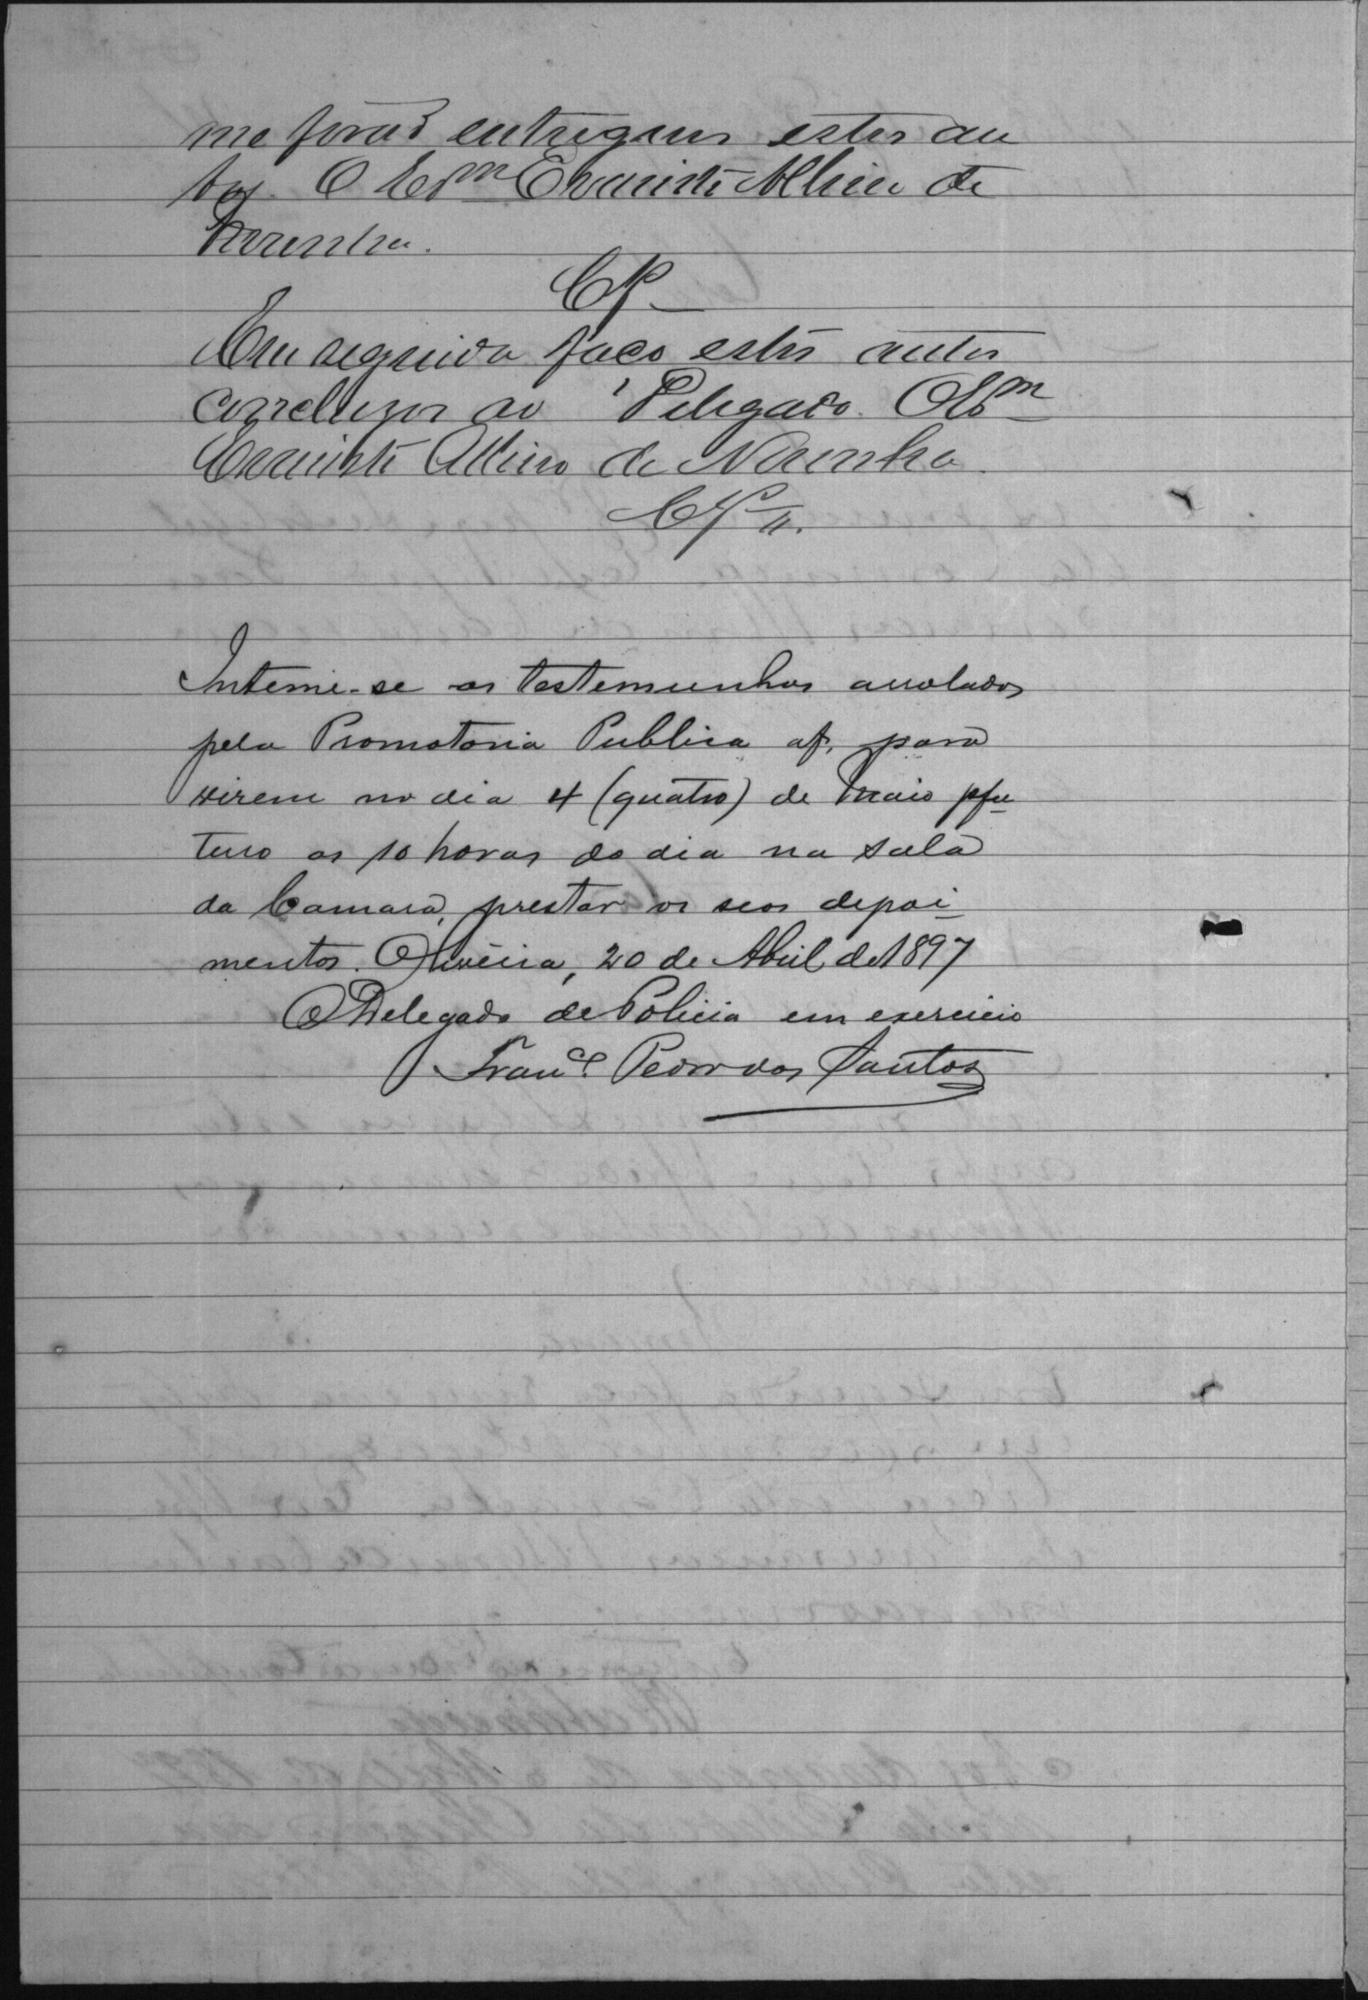 me forão entregues estes au
tos. O Escm Evaristo Albino de
Noronha.
Cls
Em seguida faço estes autos
conclusos ao Delegado. O Escm
Evaristo Albino de Noronha.
Cls
Inteme-se as testemunhas arroladas
pela Promotoria Publica af. para
virem no dia 4 (quatro) de Maio pfu
turo as 10 horas do dia na sala
da Camara, prestar os seos depoi
mentos. Oliveira, 20 de Abril de 1897
O Delegado de Policia em exercicio
Franco. Pedro dos Santos